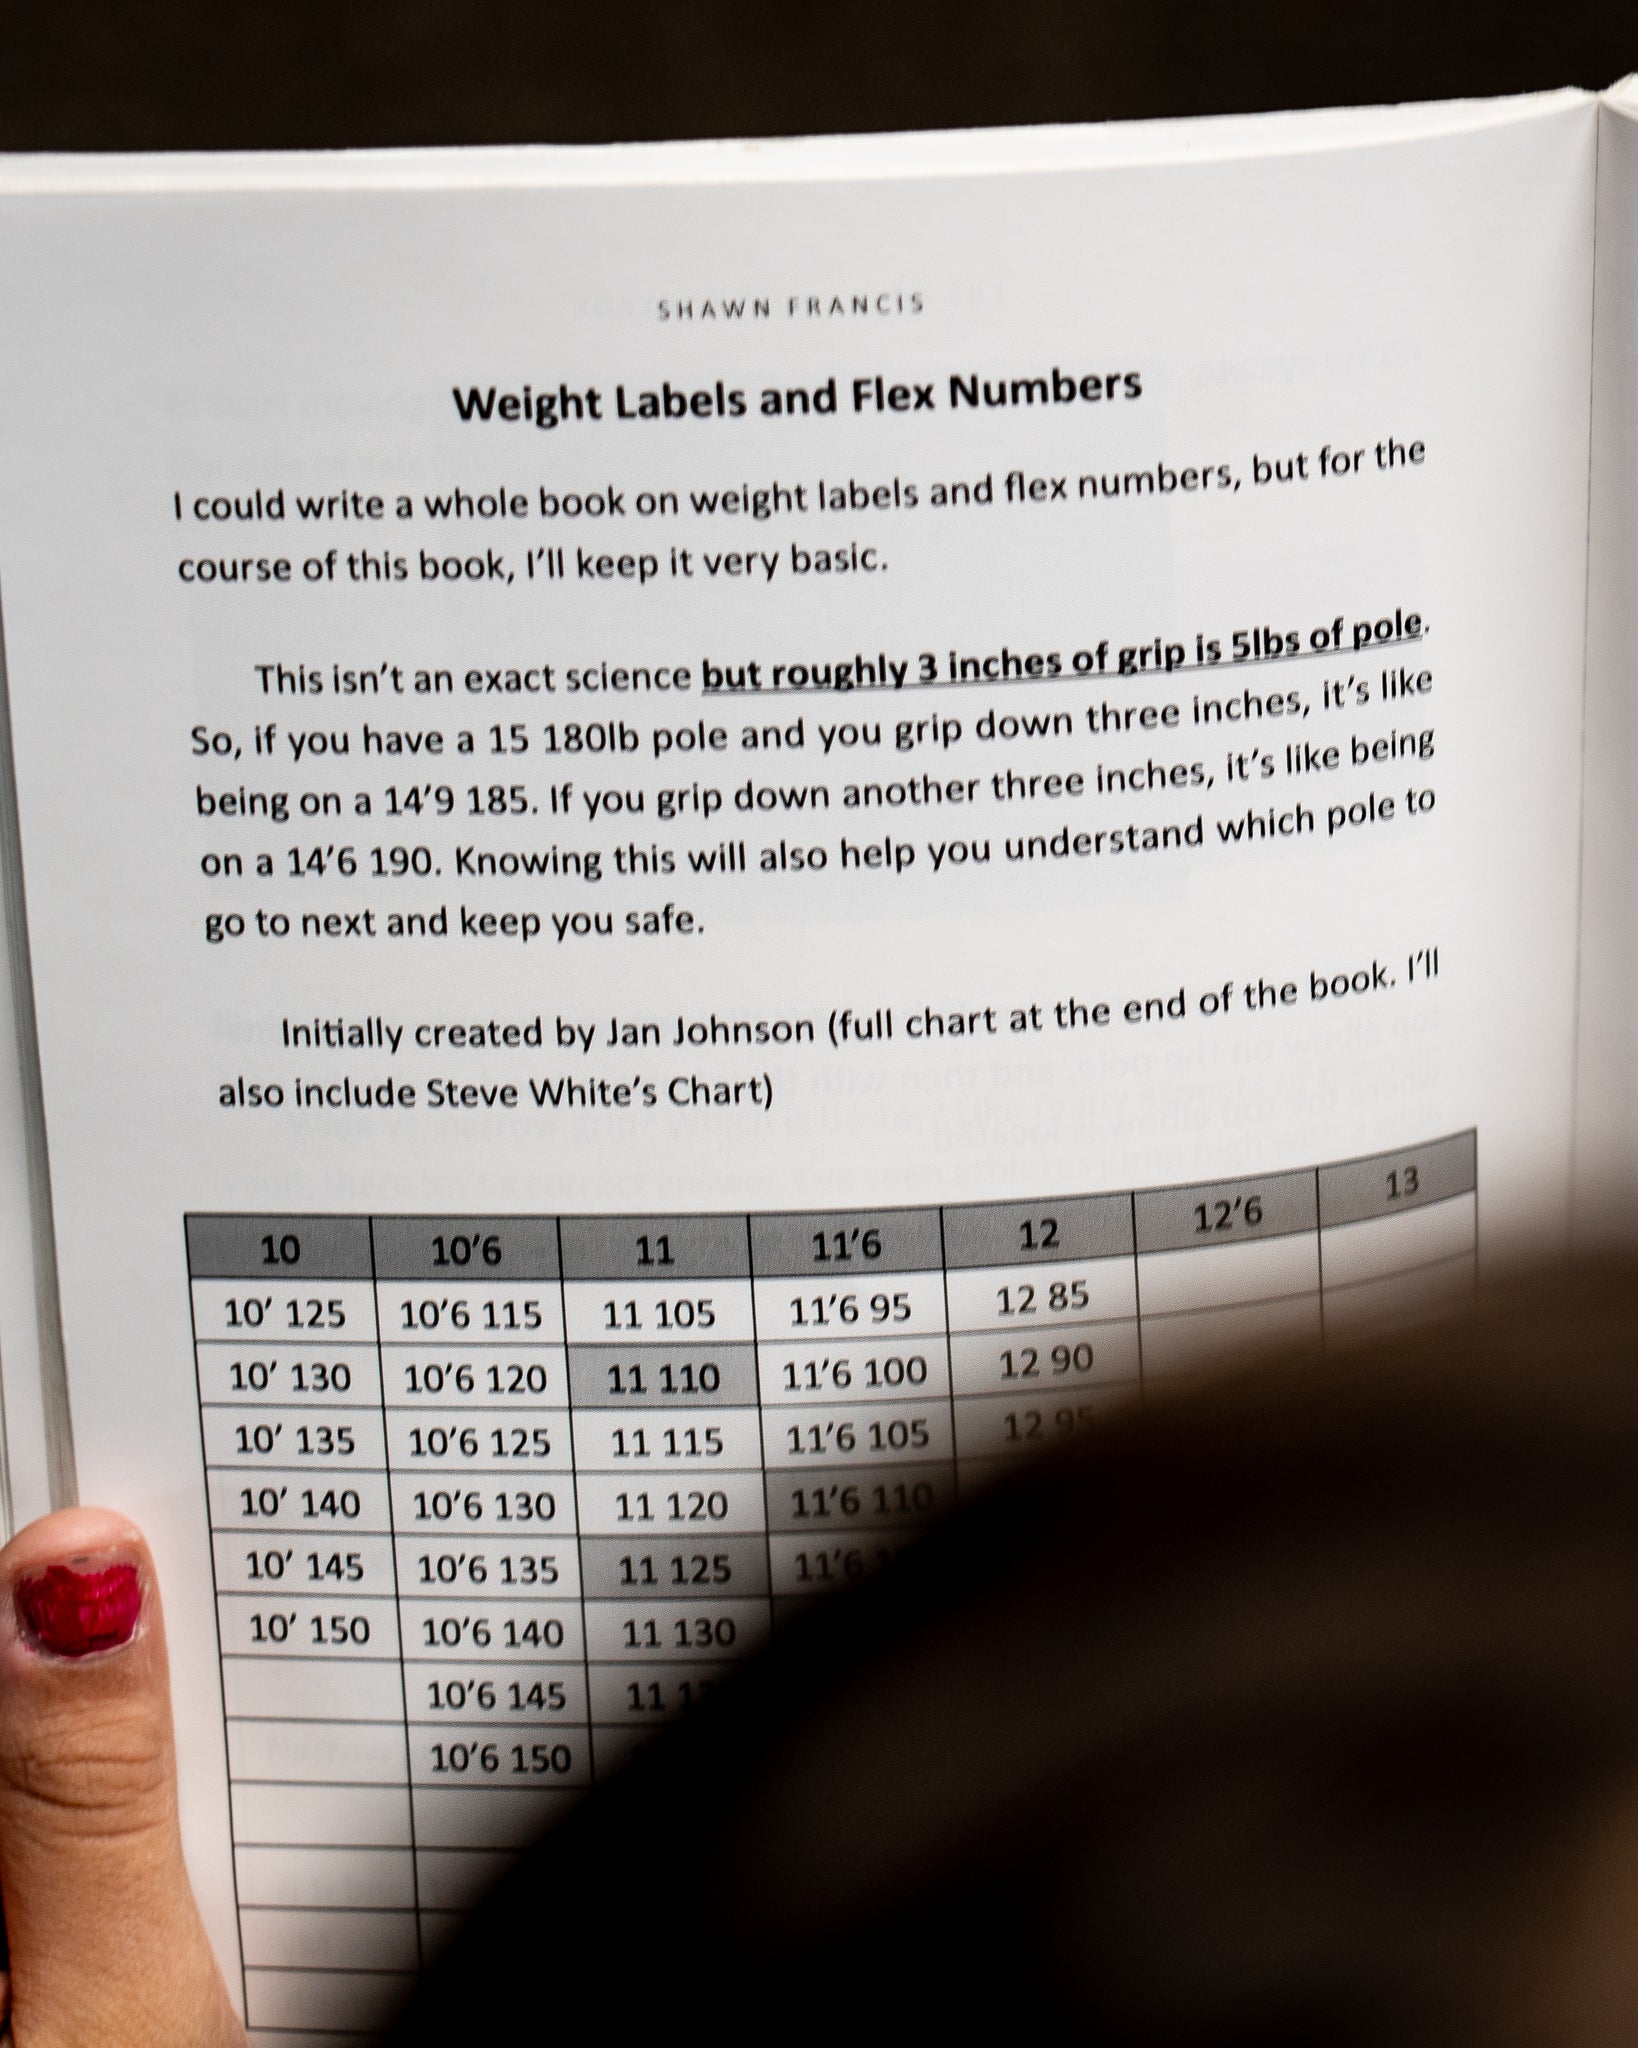 SHAWN FRANCIS
Weight Labels and Flex Numbers
I could write a whole book on weight labels and flex numbers, but for the
course of this book, I'll keep it very basic.
This isn't an exact science but roughly 3 inches of grip is 5lbs of pole.
So, if you have a 15 180lb pole and you grip down three inches, it's like
being on a 14'9 185. If you grip down another three inches, it's like being
on a 14'6 190. Knowing this will also help you understand which pole to
go to next and keep you safe.
Initially created by Jan Johnson (full chart at the end of the book. I'll
also include Steve White's Chart)
10 10'6 11 11'6 12 12'6 13
10' 125 10'6 115 11 105 11'6 95 12 85
10' 130 10'6 120 11 110 11'6 100 12 90
10' 135 10'6 125 11 115 11'6 105 12 95
10' 140 10'6 130 11 120 11'6 110
10' 145 10'6 135 11 125 11'6
10' 150 10'6 140 11 130
10'6 145 11
10'6 150